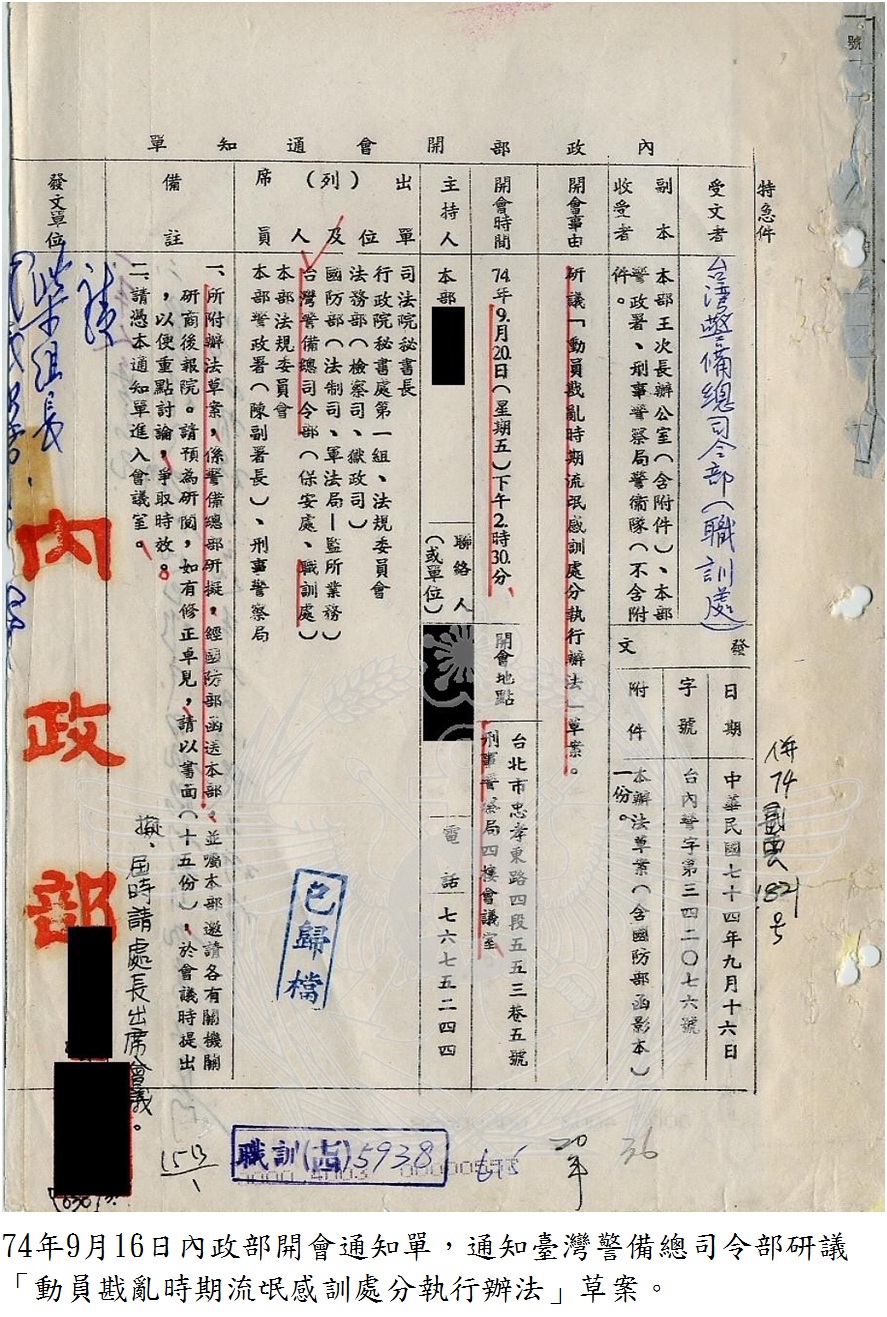 號
內政部開會通知單
特急件
受文者
台灣警備總司令部(職訓處)
副本
收受者
本部王次長辦公室(含附件)、本部
警政署、刑事警察局警衛隊(不含附
件。
發文
日期
中華民國七十四年九月十六日
字號
台內警字第三四二〇七六號
附件
本辦法草案(含國防部函影本)
一份。
開會事由
研議「動員戡亂時期流氓感訓處分執行辦法」草案。
開會時間
74年9.月20.日(星期五)下午2.時30.分
開會地點
台北市忠孝東路四段五五三巷五號
刑事警察局四樓會議室
主持人
本部
聯絡人
(或單位)
電話
七六七五二四四
出(列)席
單位及人員
司法院秘書長
行政院秘書處第一組、法規委員會
法務部(檢察司、獄政司)
國防部(法制司、軍法局—監所業務)
台灣警備總司令部(保安處、職訓處)
本部法規委員會
本部警政署(陳副署長)、刑事警察局
備註
一、所附辦法草案,係警備總部研擬,經國防部函送本部,並囑本部邀請各有關機關
研商後報院。請預為研閱,如有修正卓見,請以書面(十五份),於會議時提出
,以便重點討論,爭取時效。
二、請憑本通知單進入會議室。
發文單位
內政部
擬、屆時請處長出席會議。
已歸檔
職訓(吉)5938
20年
36
74年9月16日內政部開會通知單,通知臺灣警備總司令部研議
「動員戡亂時期流氓感訓處分執行辦法」草案。